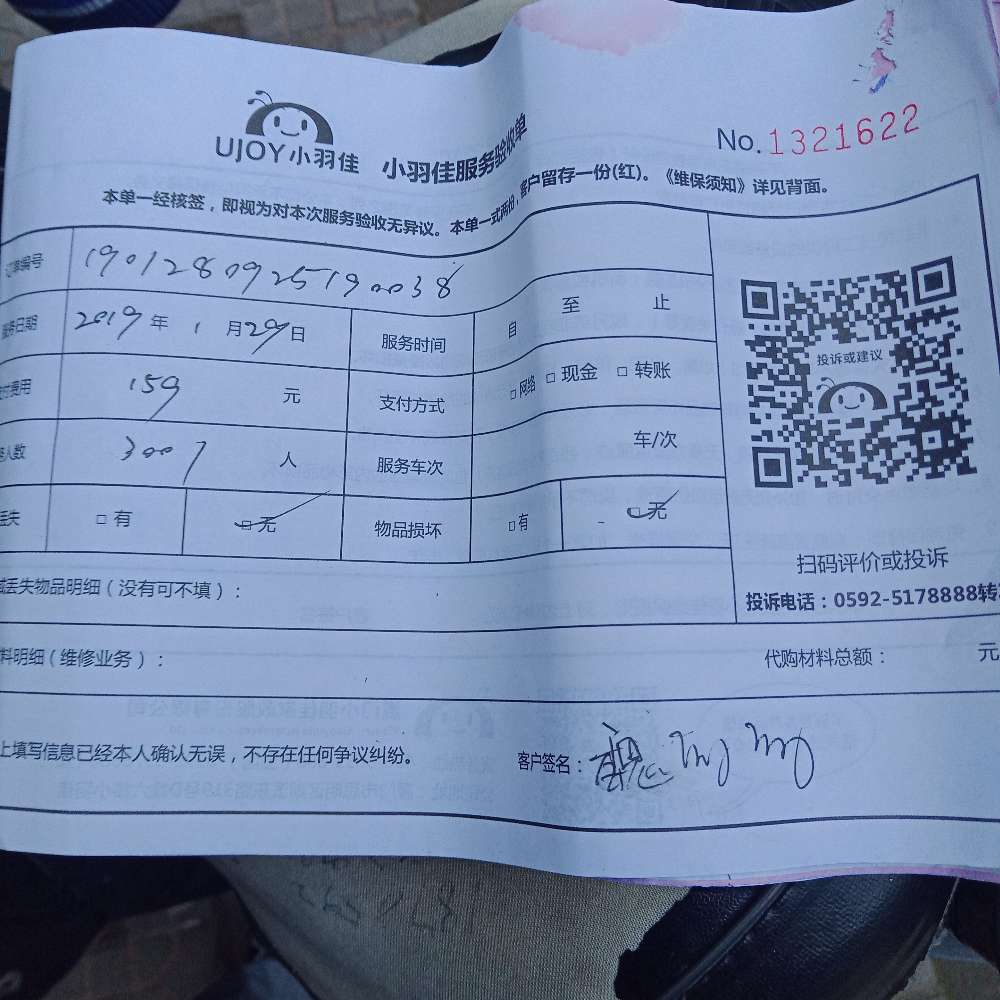 UJOY小羽佳 小羽佳服务验收单 No.1321622
本单一经核签，即视为对本次服务验收无异议。本单一式两份，客户留存一份(红)。《维保须知》详见背面。
订单编号 1901280925190038
服务日期 2019年1月29日 服务时间 自 至 止
付费用 159 元 支付方式 □网络 □现金 □转账
人数 3007 人 服务车次 车/次
丢失 □有 □无 物品损坏 □有 □无
投诉或建议
扫码评价或投诉
投诉电话：0592-5178888转
丢失物品明细（没有可不填）：
料明细（维修业务）： 代购材料总额： 元
上填写信息已经本人确认无误，不存在任何争议纠纷。 客户签名：